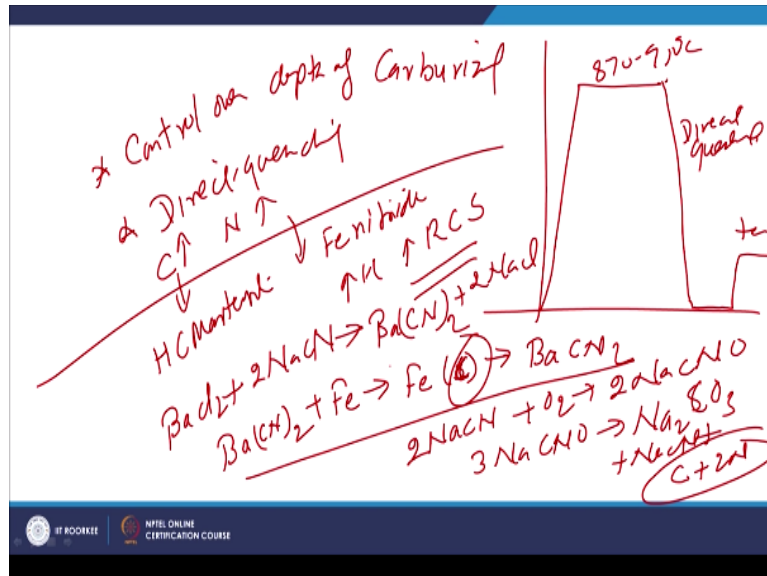 * Control over depth of Carburizi
* Direct quenching
C↑ N ↑
HC Martensi
Fe nitride
↑H ↑ RCS
BaCl2 + 2NaCN → Ba(CN)2 + 2NaCl
Ba(CN)2 + Fe → Fe (C) → BaCN2
2NaCN + O2 → 2NaCNO
3NaCNO → Na2CO3
+ NaCN+
C + 2N
Direct
te
IIT ROORKEE
NPTEL ONLINE
CERTIFICATION COURSE